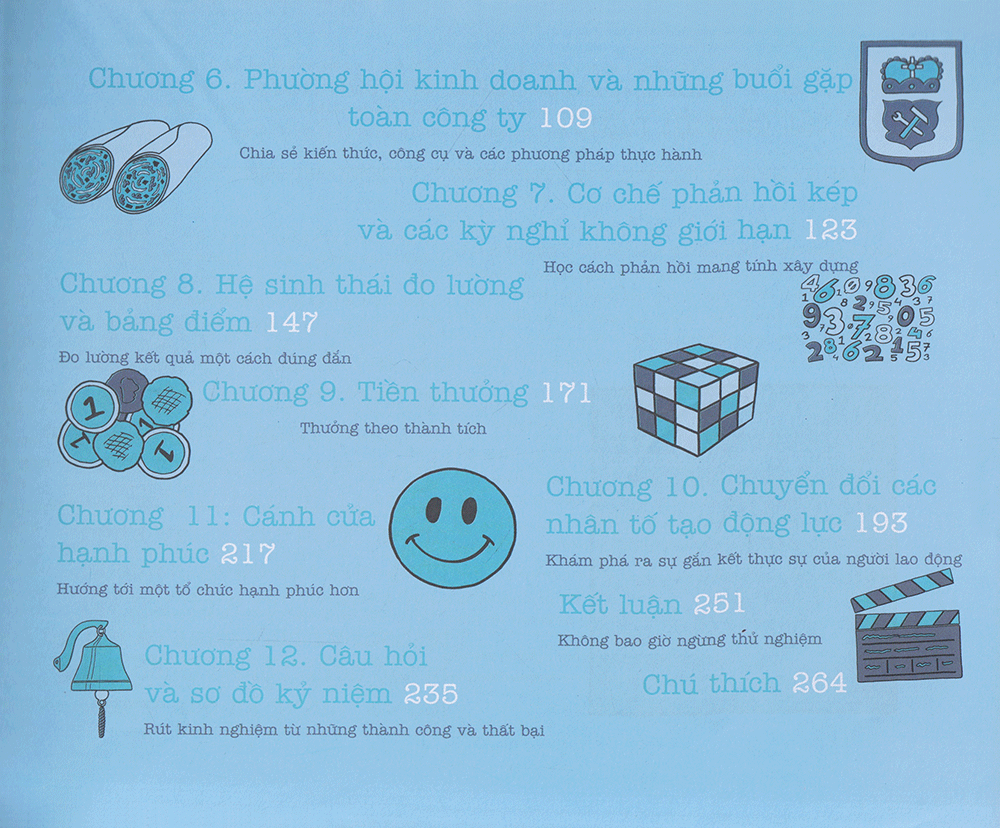 Chương 6. Phường hội kinh doanh và những buổi gặp
toàn công ty 109
Chia sẻ kiến thức, công cụ và các phương pháp thực hành
Chương 7. Cơ chế phản hồi kép
và các kỳ nghỉ không giới hạn 123
Học cách phản hồi mang tính xây dựng
Chương 8. Hệ sinh thái đo lường
và bảng điểm 147
Đo lường kết quả một cách đúng đắn
Chương 9. Tiền thưởng 171
Thưởng theo thành tích
Chương 10. Chuyển đổi các
nhân tố tạo động lực 193
Khám phá ra sự gắn kết thực sự của người lao động
Chương 11: Cánh cửa
hạnh phúc 217
Hướng tới một tổ chức hạnh phúc hơn
Chương 12. Câu hỏi
và sơ đồ kỷ niệm 235
Rút kinh nghiệm từ những thành công và thất bại
Kết luận 251
Không bao giờ ngừng thử nghiệm
Chú thích 264